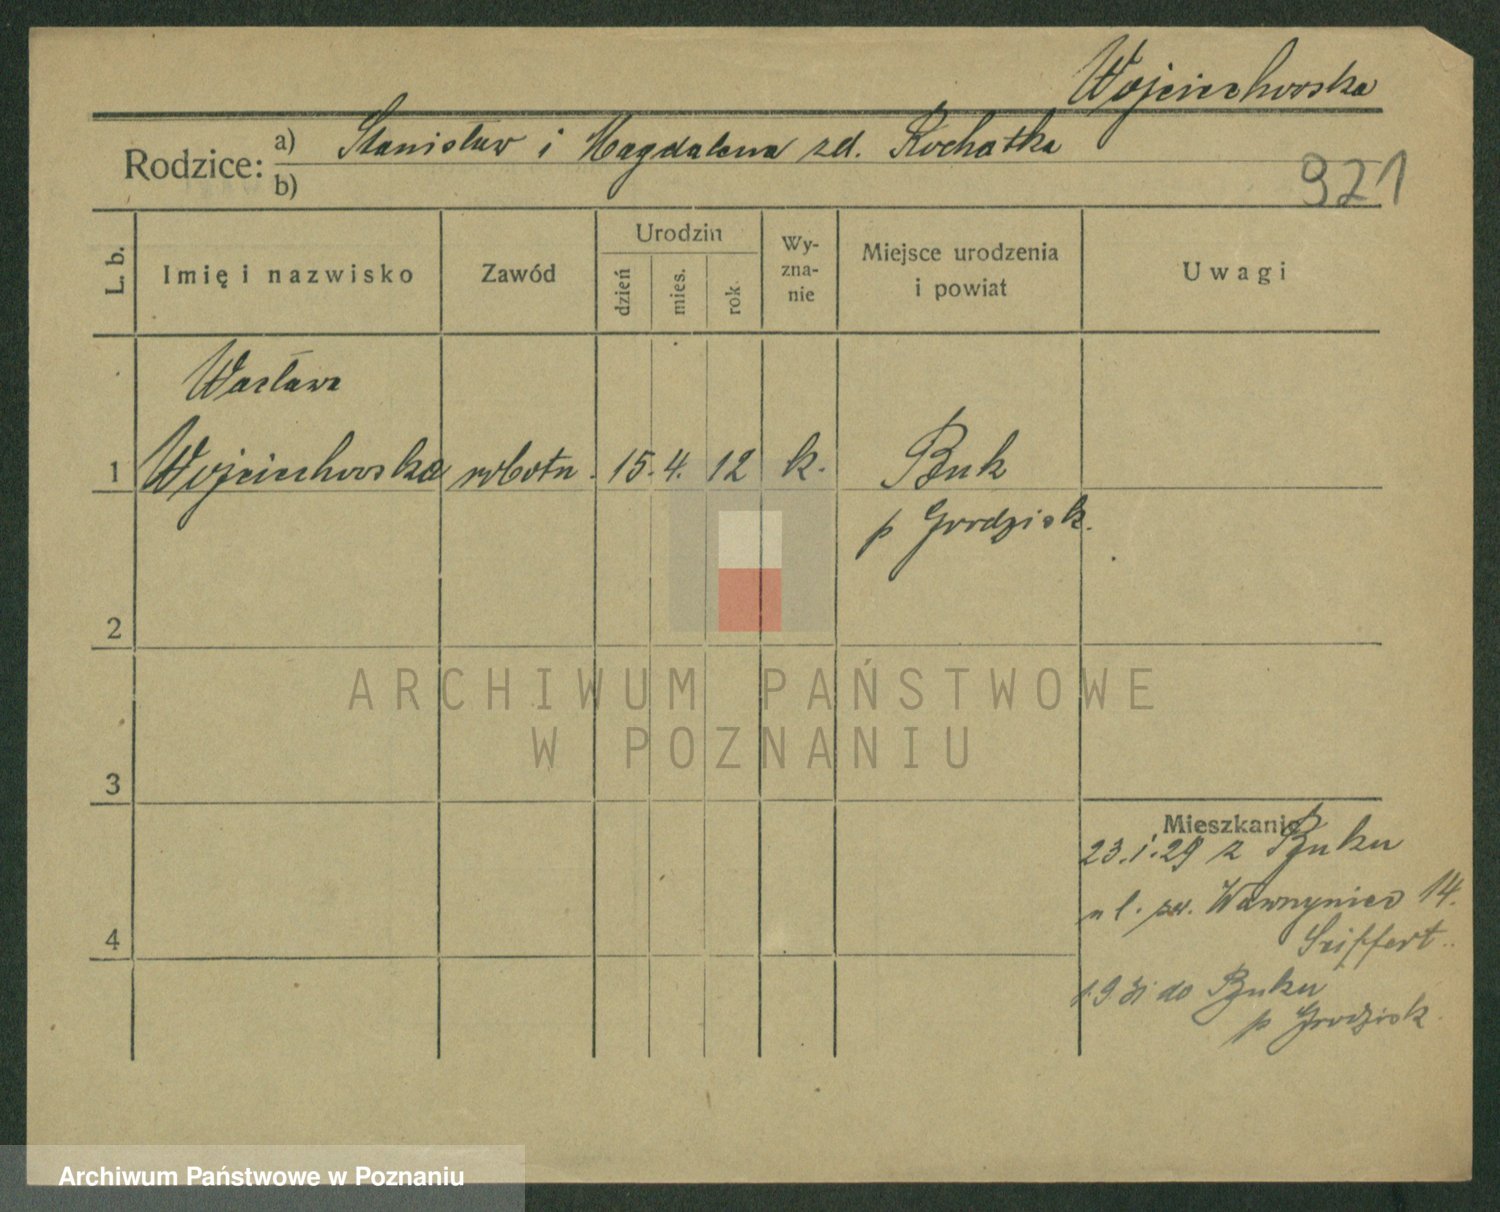 Wojciechowska
Rodzice:
a) Stanisław i Magdalena zd. Kochatka
b)
921
L. b.
Imię i nazwisko
Zawód
Urodzin
dzień
mies.
rok
Wy-
zna-
nie
Miejsce urodzenia
i powiat
Uwagi
Wacława
1 Wojciechowska robotn. 15. 4. 12 k. Buk
p Grodzisk.
2
3
4
Mieszkanie
23.1.29 z Buku
ul. św. Wawrzyniec 14.
Seiffert
1.9.31 do Buku
p Grodzisk.
ARCHIWUM PAŃSTWOWE
W POZNANIU
Archiwum Państwowe w Poznaniu